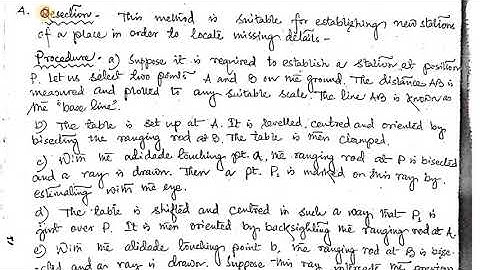 4. Resection - This method is suitable for establishing new stations
of a place in order to locate missing details -
Procedure - a) Suppose it is required to establish a station at position
P. let us select two points A and B on the ground. The distance AB is
measured and plotted to any suitable scale. The line AB is known as
the "base line".
b) The table is set up at A. It is levelled, centred and oriented by
bisecting the ranging rod at B. The table is then clamped.
c) With the alidade touching pt. a, the ranging rod at P is bisected
and a ray is drawn. Then a pt. P₁ is marked on this ray by
estimating with the eye.
d) The table is shifted and centred in such a way that P₁ is
just over P. It is then oriented by backsighting the ranging rod at A.
e) With the alidade touching point b, the ranging rod at B is bise-
cted and a ray is drawn. Suppose this ray intersects the previous